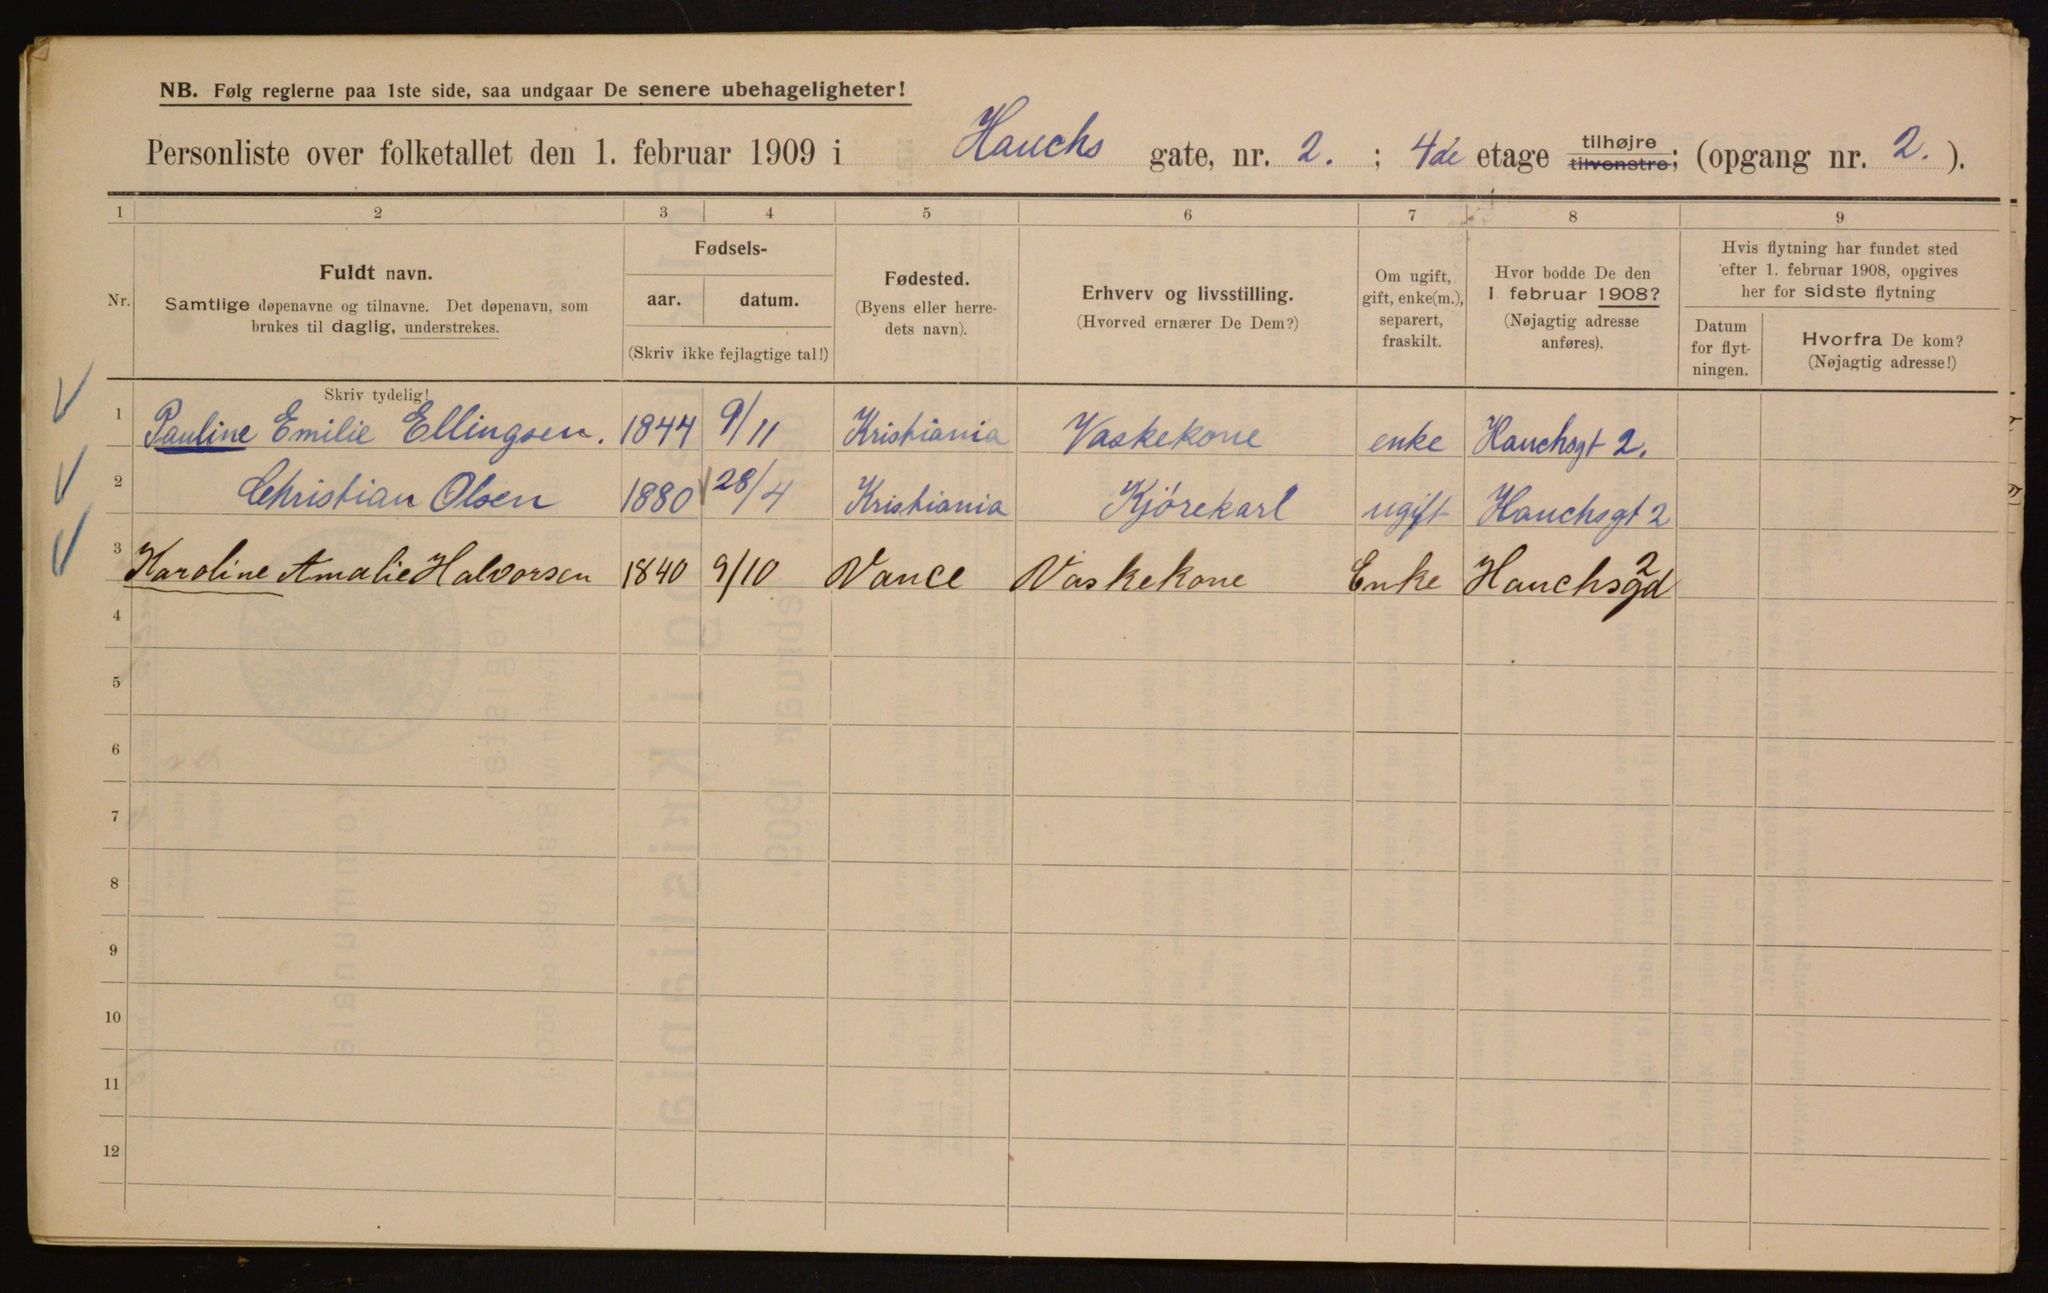 NB. Følg reglerne paa 1ste side, saa undgaar De senere ubehageligheter!
Personliste over folketallet den 1. februar 1909 i Hauchs gate, nr. 2. ; 4de etage tilhøjre tilvenstre; (opgang nr. 2. ).
1 2 3 4 5 6 7 8 9
Nr.
Fuldt navn.
Samtlige døpenavne og tilnavne. Det døpenavn, som
brukes til daglig, understrekes.
Fødsels-
aar. datum.
(Skriv ikke fejlagtige tal!)
Fødested.
(Byens eller herre-
dets navn).
Erhverv og livsstilling.
(Hvorved ernærer De Dem?)
Om ugift,
gift, enke(m.),
separert,
fraskilt.
Hvor bodde De den
1 februar 1908?
(Nøjagtig adresse
anføres).
Hvis flytning har fundet sted
efter 1. februar 1908, opgives
her for sidste flytning
Datum
for flyt-
ningen.
Hvorfra De kom?
(Nøjagtig adresse!)
Skriv tydelig!
1 Pauline Emilie Ellingsen. 1844 9/11 Kristiania Vaskekone enke Hauchsgt 2.
2 Christian Olsen 1880 28/4 Kristiania Kjørekarl ugift Hauchsgt 2
3 Karoline Amalie Halvorsen 1840 9/10 Vance Vaskekone Enke Hauchsgd 2
4
5
6
7
8
9
10
11
12